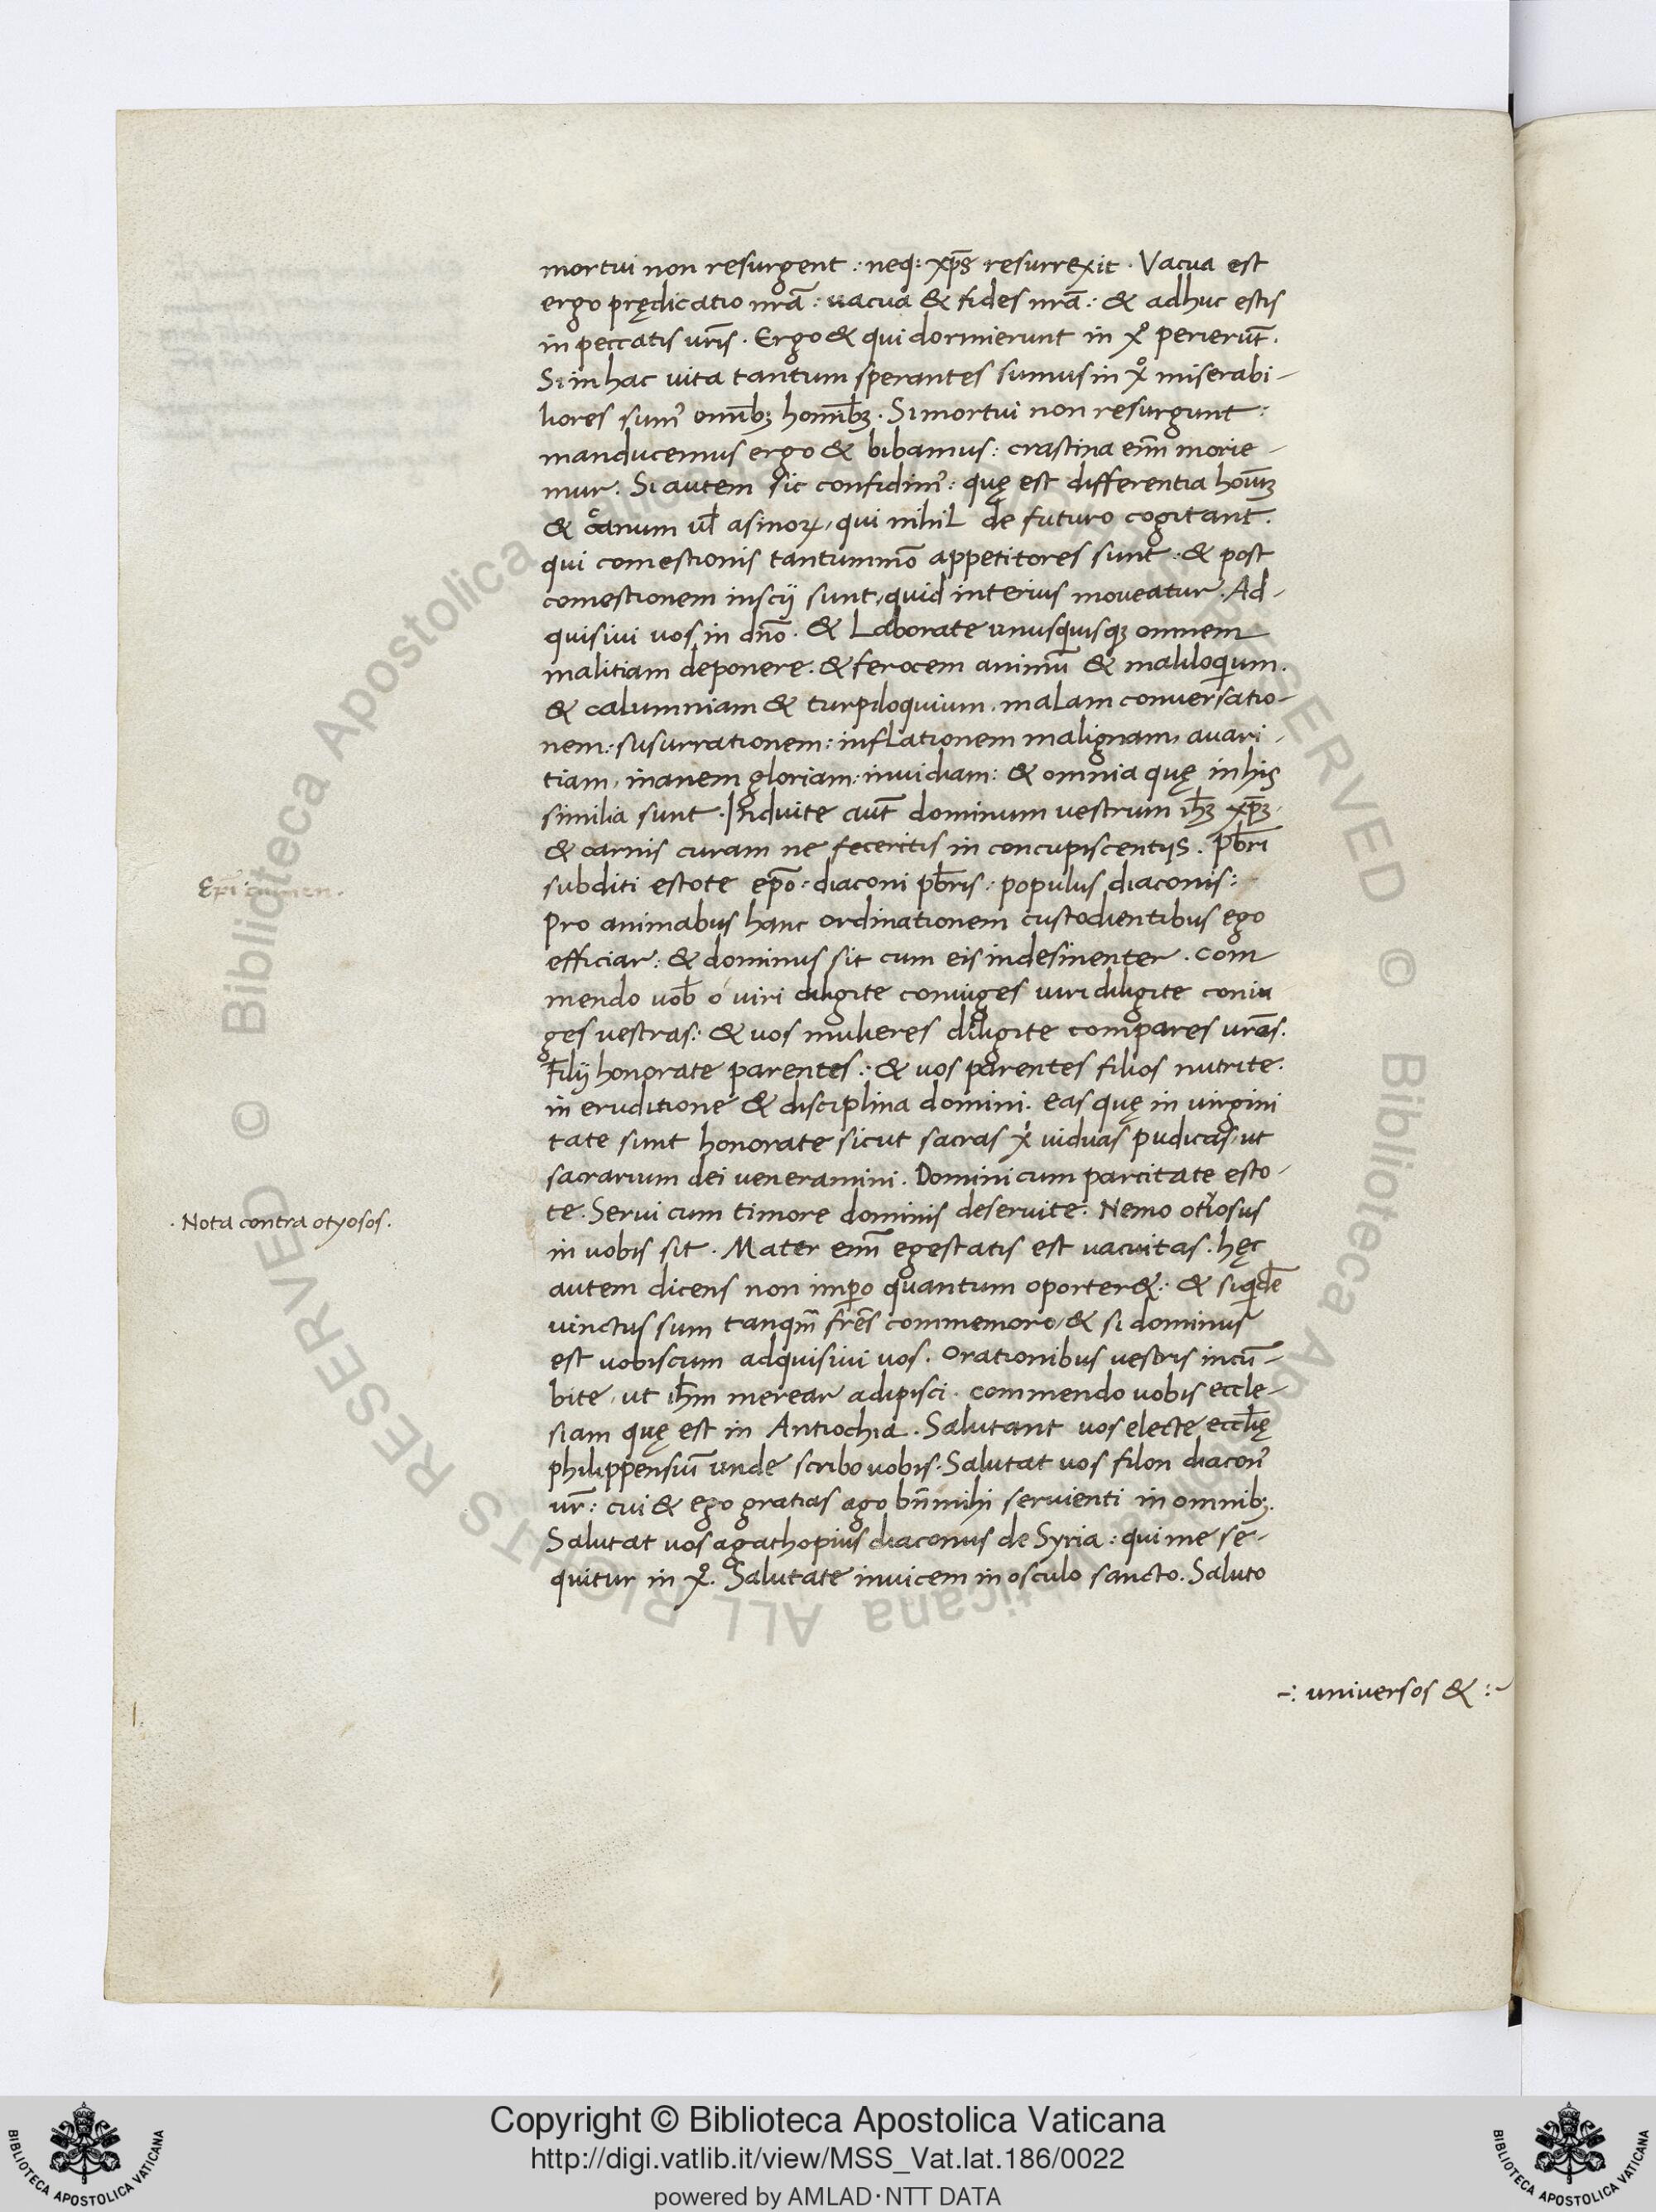 mortui non resurgent : neq; xp̄s resurrexit . Vacua est
ergo prędicatio nr̄a : uacua & fides nr̄a : & adhuc estis
in peccatis ur̄is . Ergo & qui dormierunt in xº perierūt .
Si in hac uita tantum sperantes sumus in xº miserabi-
liores sum' omīb; homīb; . Si mortui non resurgunt :
manducemus ergo & bibamus : crastina eni̅m morie-
mur . Si autem sic confidim' : quę est differentia
& canum ul̄ asinoꝝ, qui nihil de futuro cogitant .
qui comestionis tantummō appetitores sunt : & post
comestionem inscij sunt, quid interius moueatur . Ad-
quisiui uos in dn̄o . & Laborate unusquisq; omnem
malitiam deponere . & ferocem animū & maliloqium .
& calumniam & turpiloquium . malam conuersatio-
nem : susurrationem : inflationem malignam, auari-
tiam, inanem gloriam : inuidiam : & omnia quę in his
similia sunt . Induite aūt dominum vestrum ih̄ꝫ xp̄ꝫ .
& carnis curam ne feceritis in concupiscentijs . pb̄ri
subditi estote ep̄o : diaconi pb̄ris : populus diaconis :
Pro animabus hanc ordinationem custodientibus ego
efficiar : & dominus sit cum eis indesinenter . com
mendo uob̄ ó viri diligite coniuges uiri diligite coniu
ges uestras : & uos mulieres diligite compares ur̄as .
Filij honorate parentes : & uos parentes filios nutrite .
in eruditione & disciplina domini . eas quę in uirgini
tate sunt honorate sicut sacras xi uiduas pudicas, ut
sacrarium dei ueneramini . Domini cum parcitate esto-
te . Serui cum timore dominis deseruite . Nemo otiosus
in uobis sit . Mater eni̅m egestatis est uacuitas . hęc
autem dicens non imp̲o quantum oporter& : & siqidē
uinctus sum tanqm̄ fr̄es commemoro, & si dominus
est uobiscum adquisiui uos . Orationibus uestris incū-
bite, ut ih̄m merear adipisci . commendo uobis eccle-
siam quę est in Antiochia . Salutant uos electe eccl̄ię
philippensiū unde scribo uobis . Salutat uos filon diacon'
ur̄ : cui & ego gratias ago bn̄ mihi seruienti in omnib; .
Salutat uos agathopius diaconus de Syria : qui me se-
quitur in xº . Salutate inuicem in osculo sancto . Saluto
. Nota contra otyosos .
-: universos & :-
© Biblioteca Apostolica Vaticana ALL RIGHTS RESERVED
© Biblioteca Apostolica Vaticana ALL RIGHTS RESERVED
Copyright © Biblioteca Apostolica Vaticana
http://digi.vatlib.it/view/MSS_Vat.lat.186/0022
powered by AMLAD·NTT DATA
BIBLIOTECA APOSTOLICA VATICANA
BIBLIOTECA APOSTOLICA VATICANA